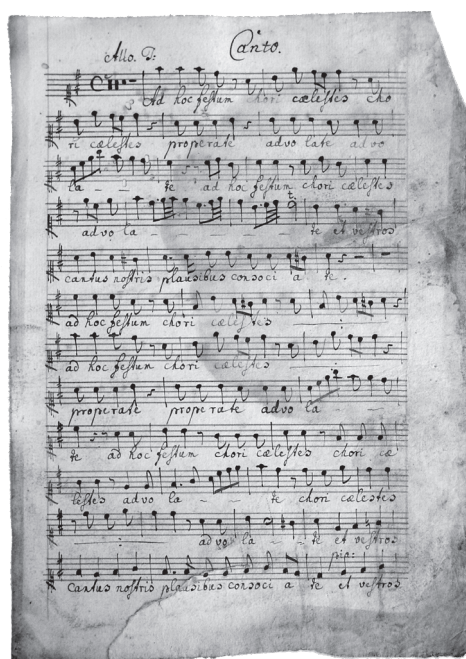 Allo. D: Canto.
Ad hoc festum chori cælestes cho
ri cælestes properate advo late advo
la - - te ad hoc festum chori cælestes
t:
advo la - - - - - te et vestros
cantus nostris plausibus consoci a te.
ad hoc festum chori cælestes
ad hoc festum chori cælestes
properate properate advo la - -
te ad hoc festum chori cælestes chori cæ
lestes advo la - - te chori cælestes
advo la - - te et vestros
pia:
Cantus nostris plausibus consoci a te et vestros